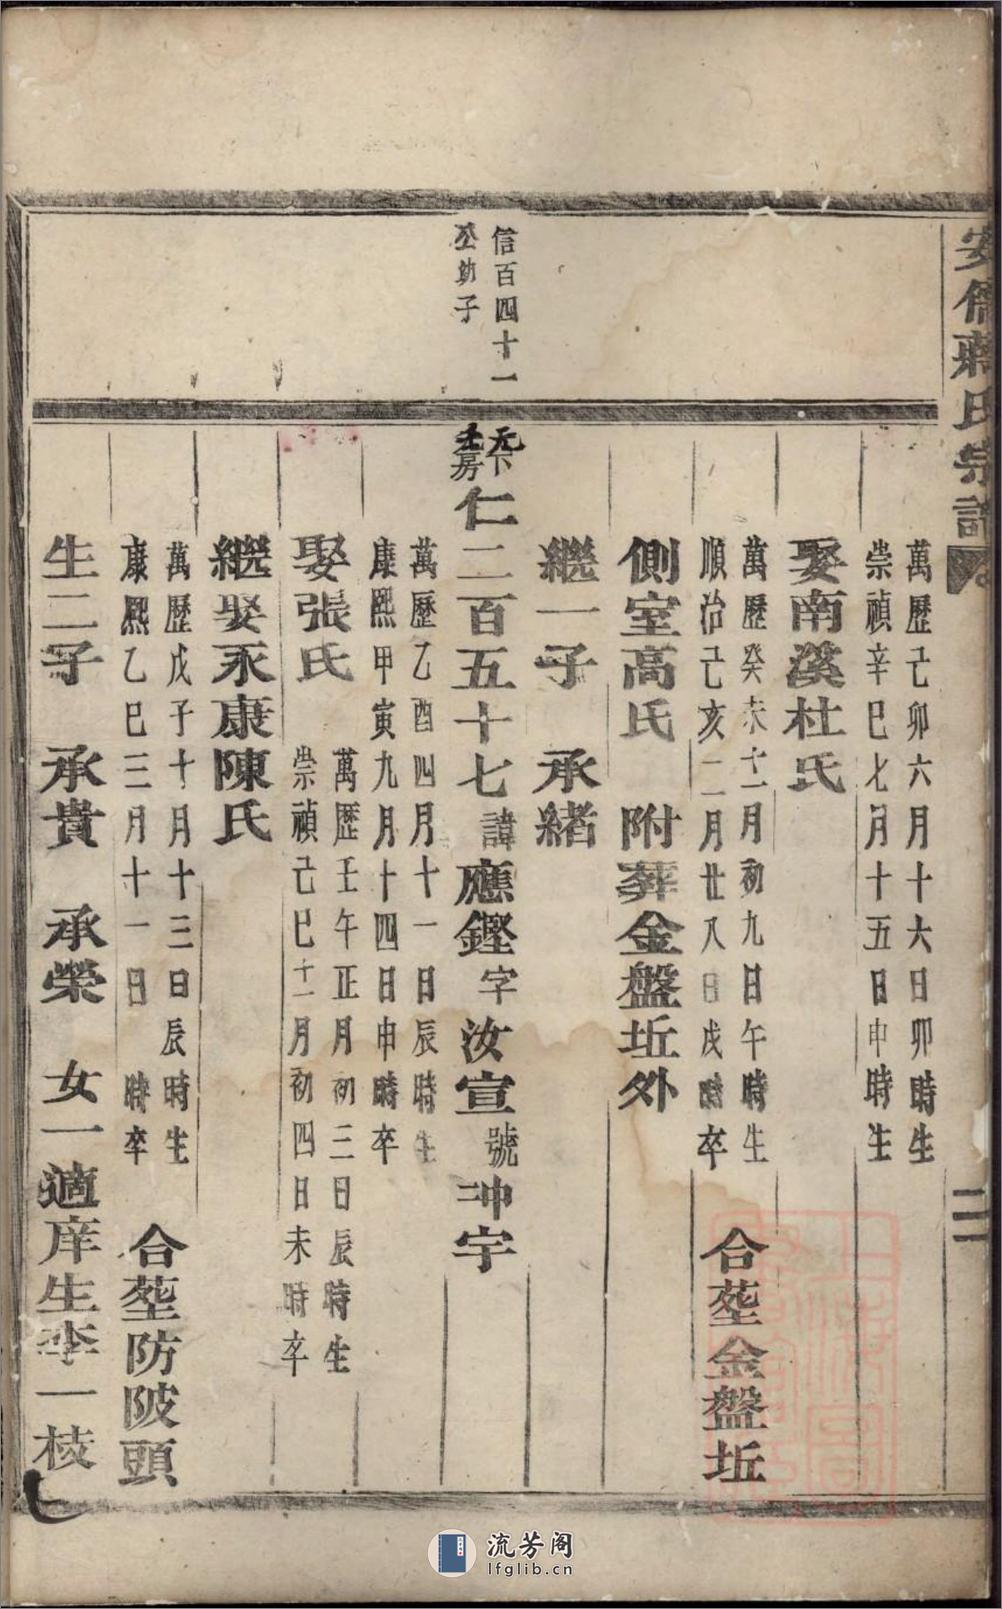 安 蔣氏宗譜
二
萬歷己卯六月十六日卯時生
崇禎辛巳七月十五日申時生
娶南溪杜氏
萬歷癸未十一月初九日午時生
順治己亥二月廿八日戌時卒
合塟金盤坵
側室高氏 附葬金盤坵外
繼一子 承緒
信百四十一
公幼子
下
房
仁二百五十七諱應鏗字汝宣號冲宇
萬歷乙酉四月十一日辰時生
康熙甲寅九月十四日申時卒
娶張氏
萬歷壬午正月初三日辰時生
崇禎己巳十一月初四日未時卒
繼娶永康陳氏
萬歷戊子十月十三日辰時生
康熙乙巳三月十一日 時卒
合塟防陂頭
生二子 承貴 承榮 女一適庠生李一棱
流芳阁
lfglib.cn